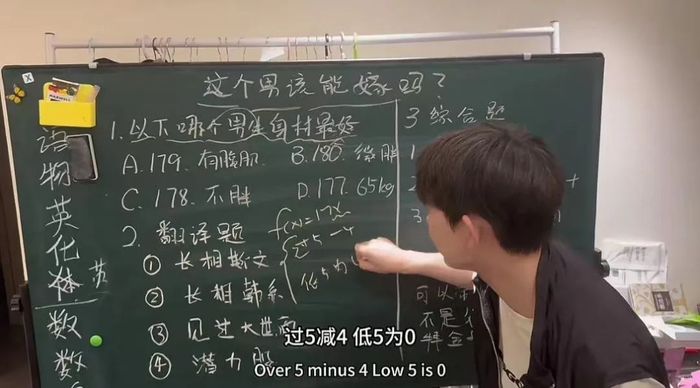 这个男孩能嫁吗?
语
物
英
化
体 英
数
数
1. 以下哪个男生身材最好
A. 179. 有腹肌 B. 180. 微胖
C. 178. 不胖 D. 177. 65kg
f(x)=17x
过5 -4
低5为
2. 翻译题
① 长相斯文
② 长相韩系
③ 见过大世面
④ 潜力股
3 综合题
1
2
+
3
可以
不是
过5减4 低5为0
Over 5 minus 4 Low 5 is 0